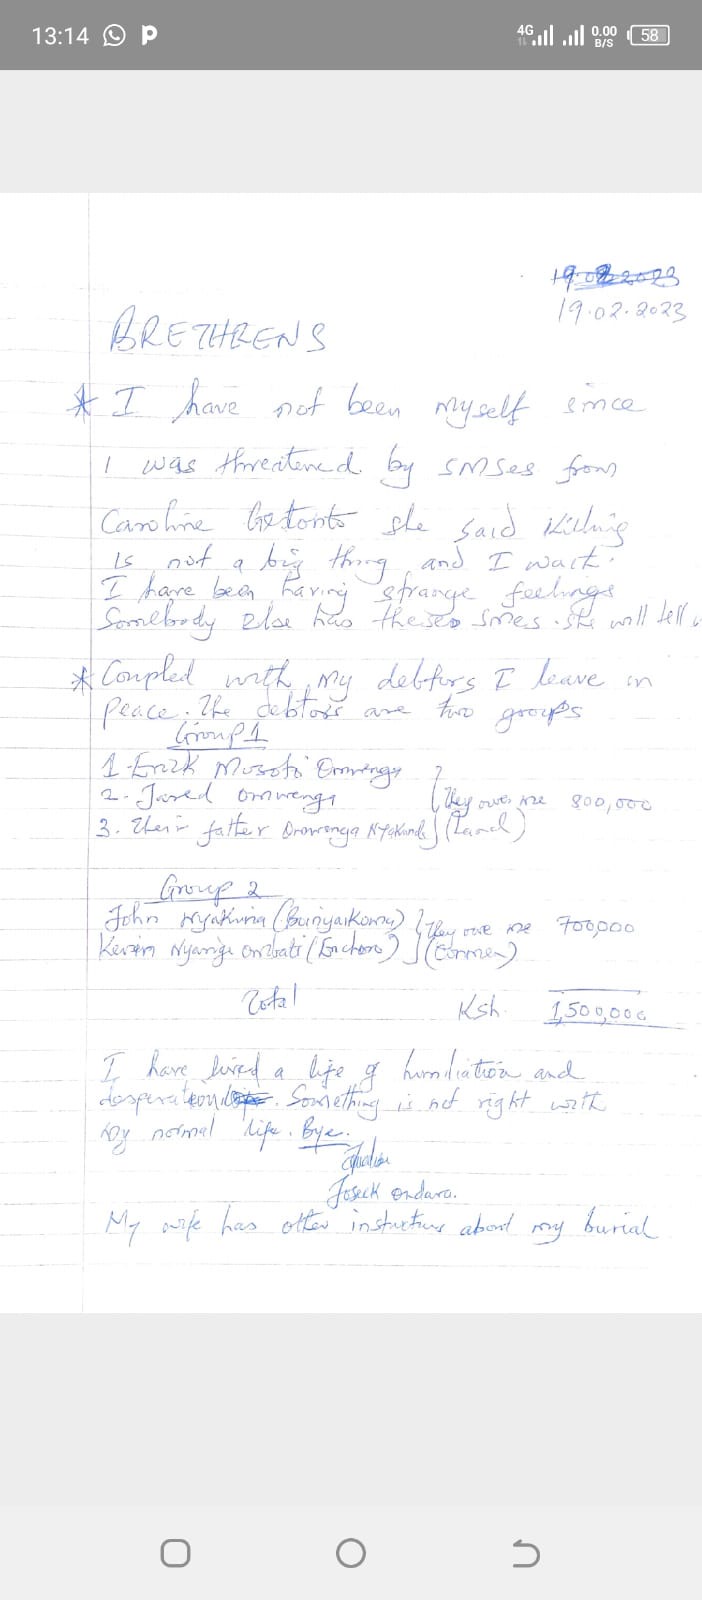 13:14
4G
0.00
B/S
58
19.02.2023
19.02.2023
BRETHRENS
* I have not been myself since
I was threatened by SMSes from
Caroline she said killing
is not a big thing and I wait.
I have been having strange feelings
Somebody else has these smses. She will tell
* Coupled with my debtors I leave in
peace. The debtors are two groups
Group 1
1. Erick Mosoti Omwenga
2. Jared Omwenga
3. Their father Omwenga
They owe me 800,000
(Land)
Group 2
John Nyakuria
Kevin Nyarige Ombati
They owe me 700,000
(Conmen)
Total Ksh. 1,500,000
I have lived a life of humiliation and
desperation. Something is not right with
my normal life. Bye.
Joseck Ondara.
My wife has other about my burial